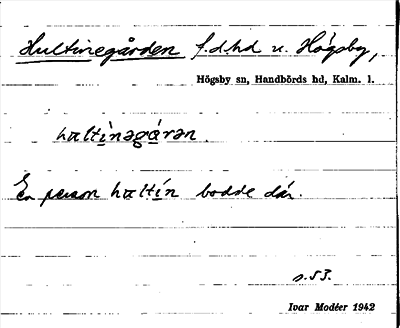 Hultinegården f.d.hd v. Högsby,
Högsby sn, Handbörds hd, Kalm. l.
hultìnəgá̱rən.
En person hultín bodde där.
s.53.
Ivar Modéer 1942